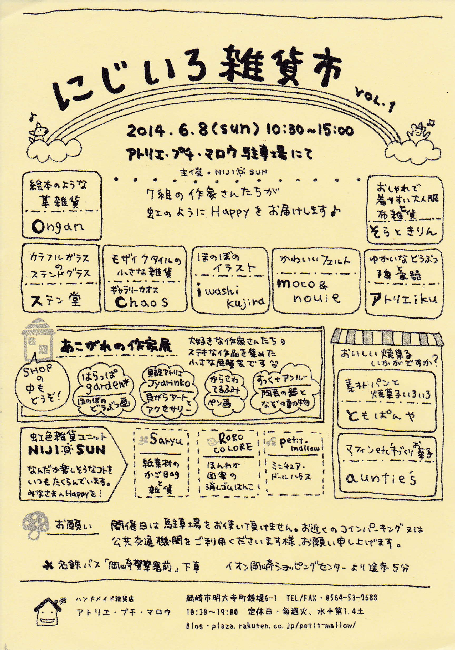 にじいろ雑貨市
VOL.1
2014.6.8(sun) 10:30~15:00
アトリエ・プチ・マロウ駐車場にて
主催・NIJI SUN
7組の作家さんたちが
虹のようにHappyをお届けします♪
絵本のような
革雑貨
Ongan
おしゃれで
着やすい大人服
布雑貨
そらときりん
カラフルガラス
の
ステンドグラス
ステン堂
モザイクタイルの
小さな雑貨
ギャラリーカオス
Chaos
ほのぼの
イラスト
iwashi
kujira
かわいいフェルト
moco&
nouie
ゆかいなどうぶつ
陶食器
アトリエiku
SHOP
の中も
どうぞ!
あこがれの作家展
大好きな作家さんたちの
ステキな作品を集めた
小さな展覧会です
はらっぱ
garden
ほのぼの
どうぶつ画
Jyarinko
アクセサリー
からさわ
てるふみ
ペン画
すぎもとアンリー
おいしい焼菓子
いかがですか?
素朴パンと
焼菓子いろいろ
ともぱんや
マフィンetc手づくりお菓子
aunties
虹色雑貨ユニット
NIJI SUN
なんだか楽しそうなコトを
いつもたくらんでいます。
みなさんHappyを!
Sanyu
紙素材の
かごBagと
雑貨
ROBO
COLORE
ほんわか
図案の
消しゴムはんこ
petit
mallow
ミニチュア・
ドールハウス
お願い
開催日は駐車場をお使い頂けません。お近くのコインパーキング又は
公共交通機関をご利用くださいます様、お願い申し上げます。
名鉄バス「岡崎警察署前」下車 イオン岡崎ショッピングセンターより徒歩5分
ハンドメイド雑貨店
アトリエ・プチ・マロウ
岡崎市明大寺町諸塚6-1 TEL/FAX・0564-53-7688
10:30~19:00 定休日・毎週火、水+第1.4土
Blog・plaza.rakuten.co.jp/petit-mallow/